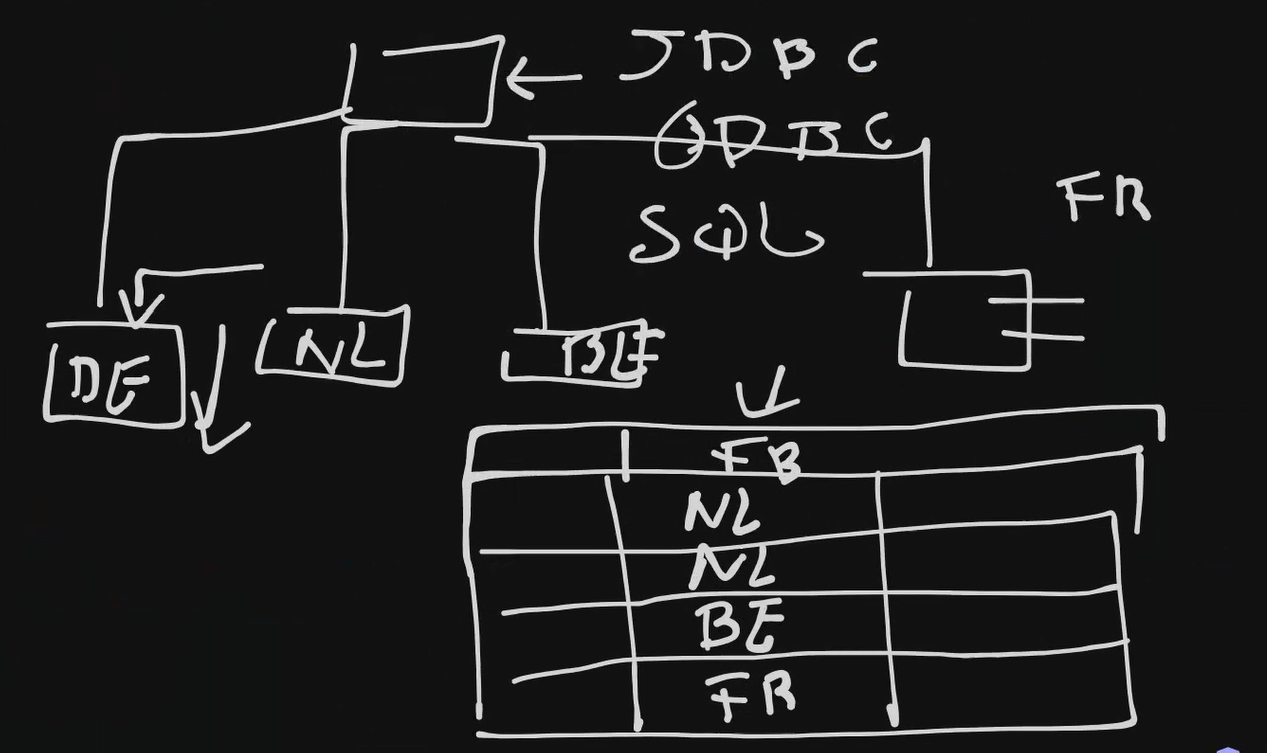 JDBC
ODBC
FR
SQL
DE
NL
BE
FB
NL
NL
BE
FR